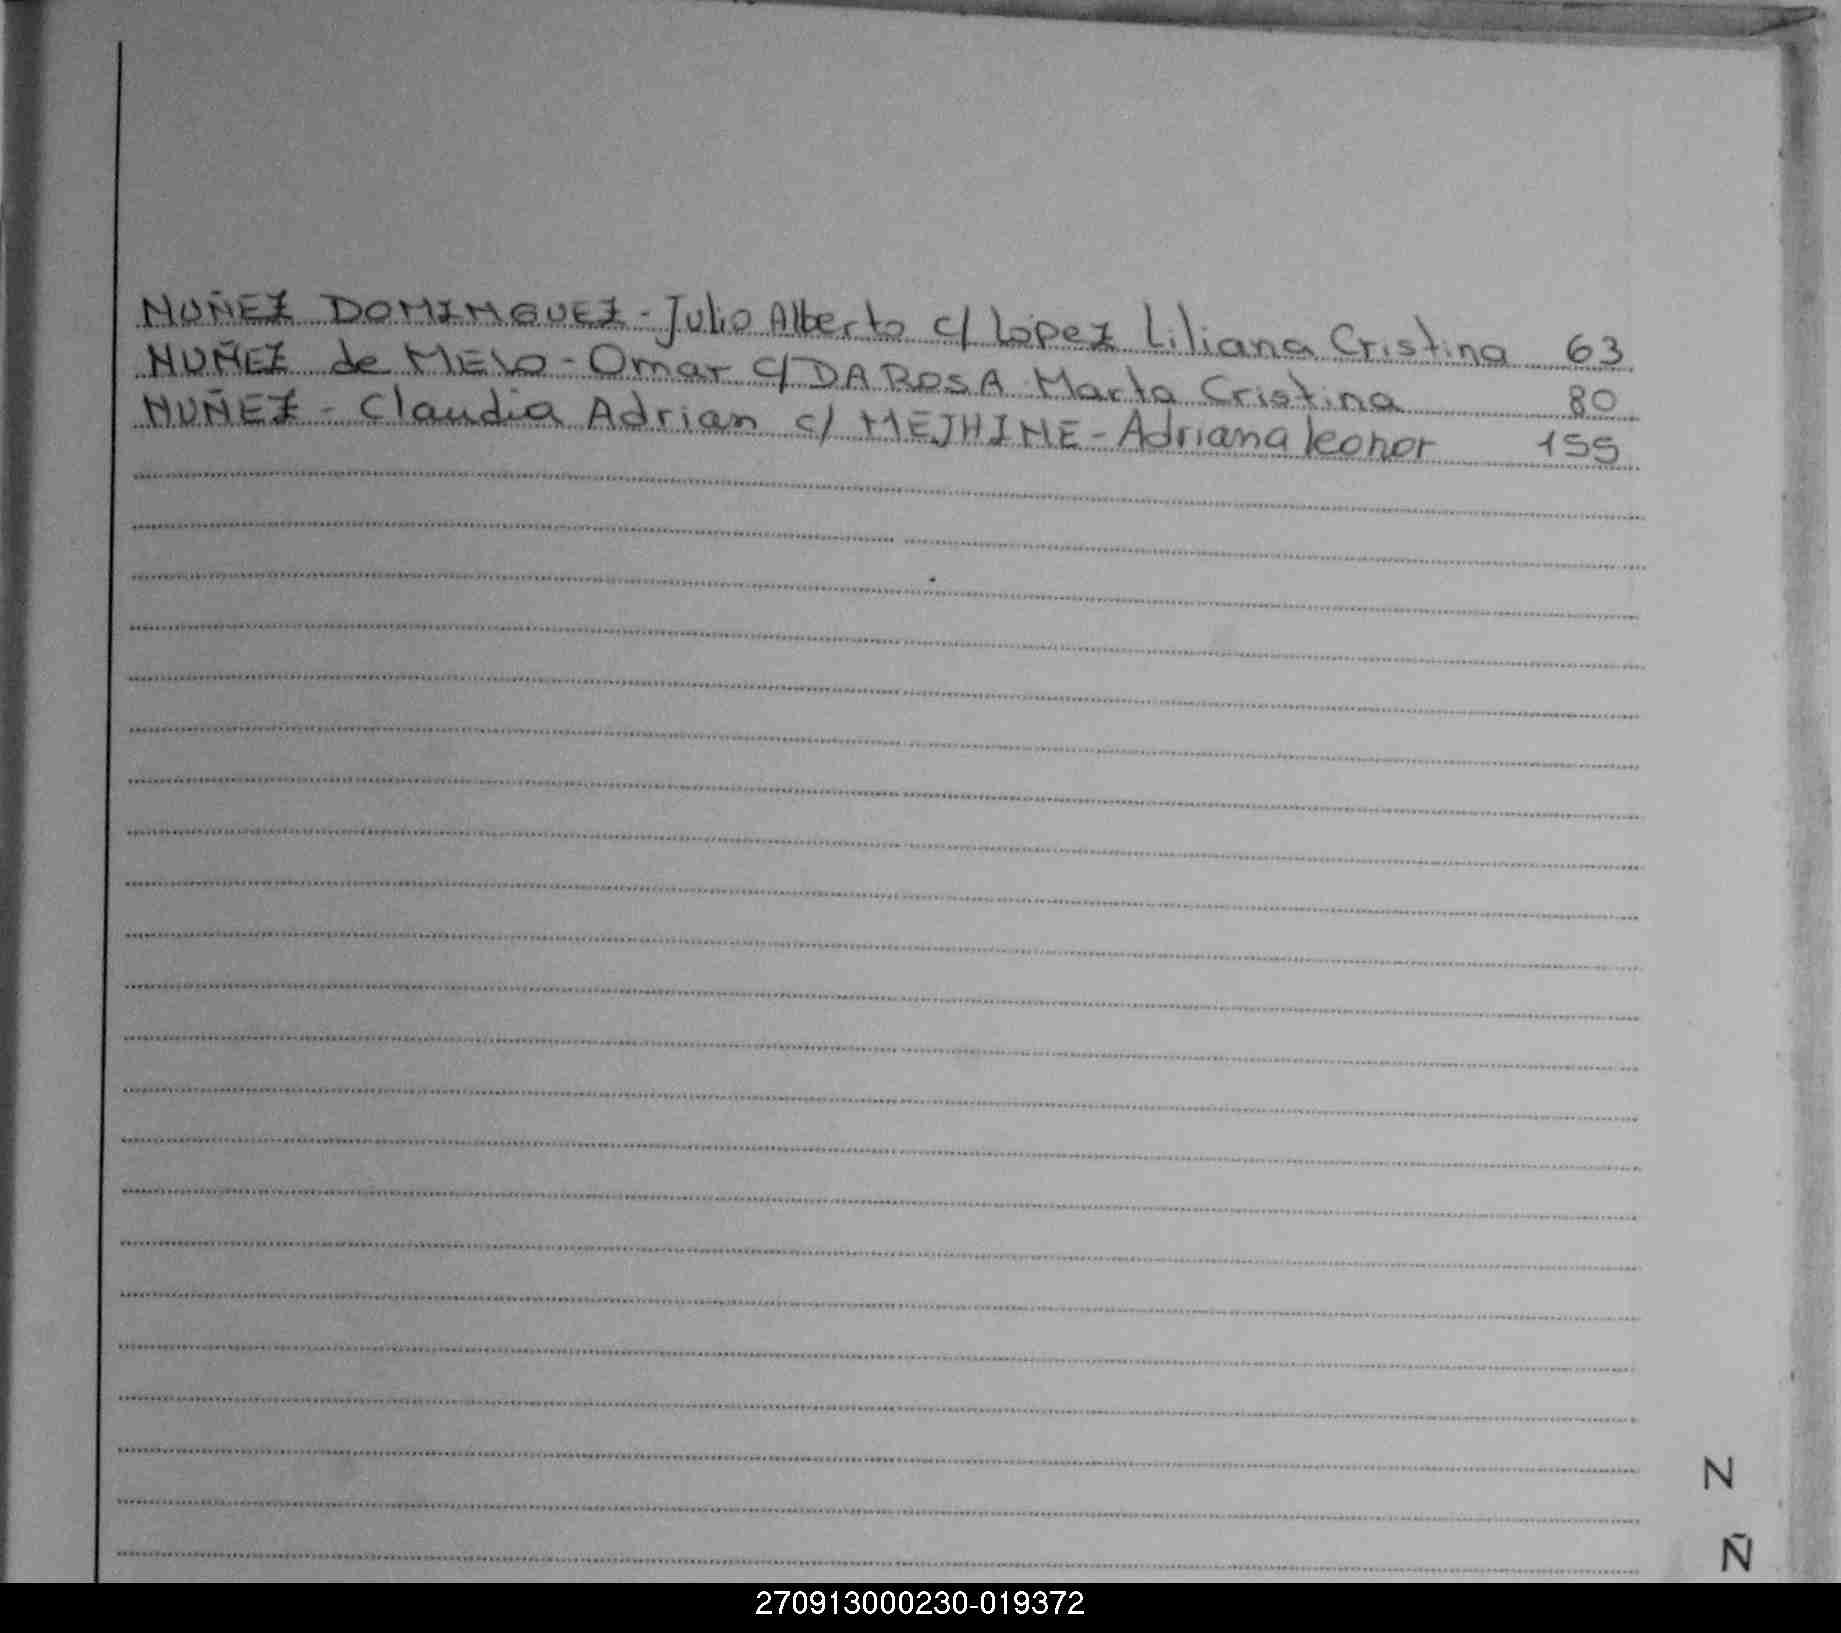 NUÑEZ DOMINGUEZ - Julio Alberto c/ Lopez Liliana Cristina 63
NUÑEZ de MELO - Omar c/ DA ROSA Marta Cristina 80
NUÑEZ - Claudia Adrian c/ MEJHINE - Adriana leonor 155
N
Ñ
270913000230-019372